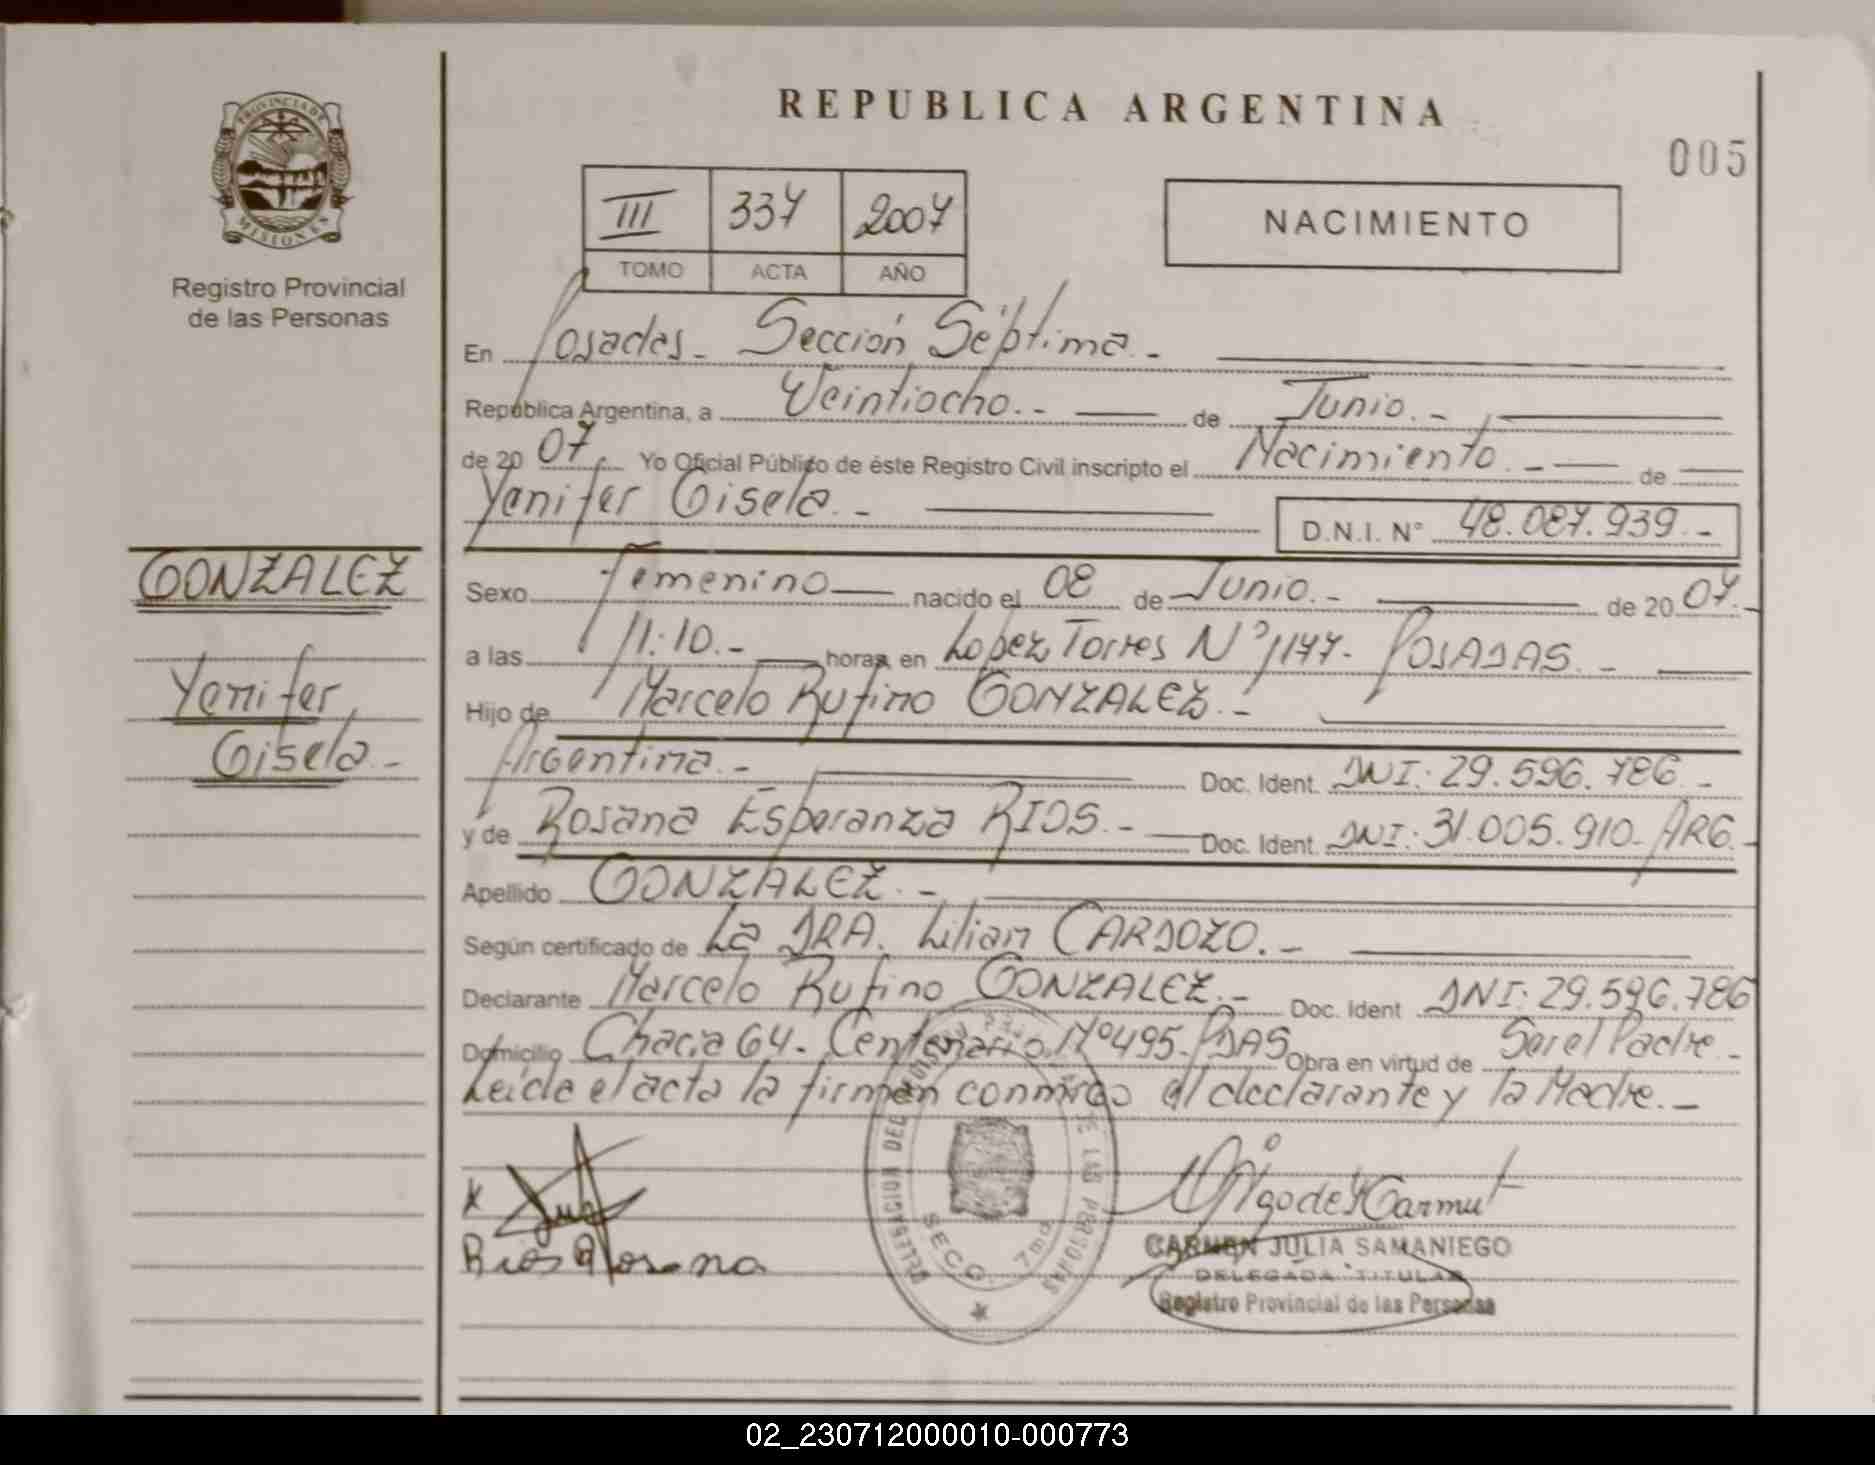 REPUBLICA ARGENTINA
005
PROVINCIA DE
MISIONES
Registro Provincial
de las Personas
III 337 2007
TOMO ACTA AÑO
NACIMIENTO
En Posadas - Sección Séptima. -
República Argentina, a Veintiocho. - de Junio. -
de 20 07. Yo Oficial Público de éste Registro Civil inscripto el Nacimiento. - de
Yenifer Gisela. - D.N.I. N° 48.087.939. -
GONZALEZ
Yenifer
Gisela. -
Sexo Femenino nacido el 08 de Junio. - de 20 07. -
a las 11:10. - horas, en Lopez Torres N° 1177 - POSADAS. -
Hijo de Marcelo Rufino GONZALEZ. -
Argentina. - Doc. Ident. DNI: 29.596.786. -
y de Rosana Esperanza RIOS. - Doc. Ident. DNI: 31.005.910 - ARG. -
Apellido GONZALEZ. -
Según certificado de La DRA. Lilian CARDOZO. -
Declarante Marcelo Rufino GONZALEZ. - Doc. Ident DNI: 29.596.786
Domicilio Chacra 64 - Centenario N° 495 - PDAS Obra en virtud de Ser el Padre. -
Leída el acta la firman conmigo el declarante y la Madre. -
x
Rios Rosana
DELEGACION DEL REGISTRO DE LAS PERSONAS
SECC. 7ma
CARMEN JULIA SAMANIEGO
DELEGADA TITULAR
Registro Provincial de las Personas
02_230712000010-000773